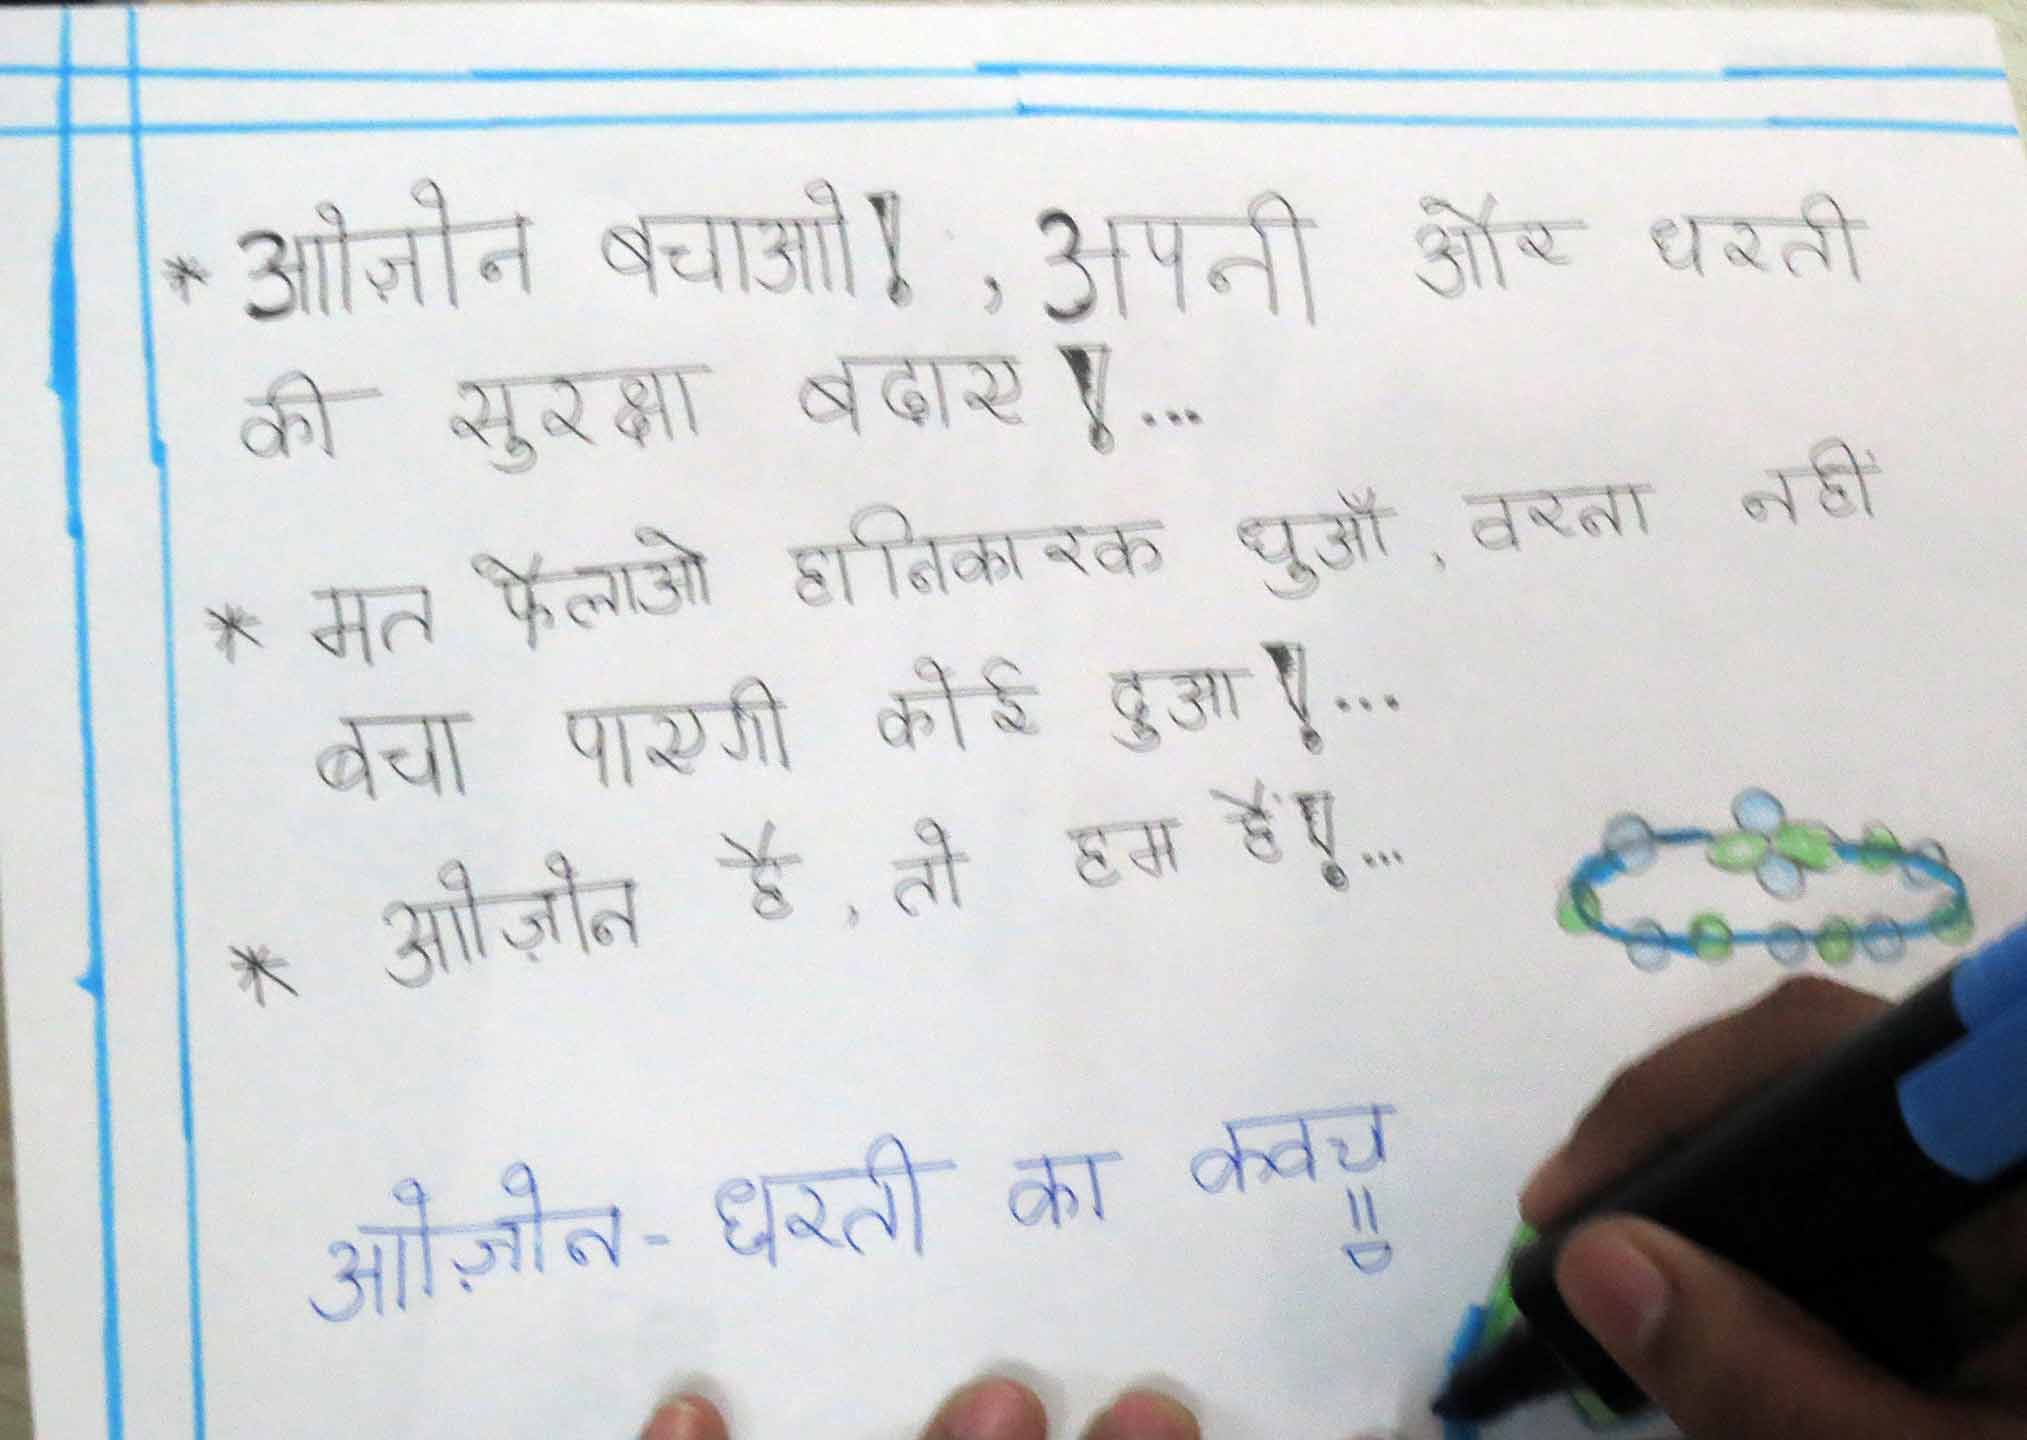 * ओज़ोन बचाओ!, अपनी और धरती
की सुरक्षा बढ़ाए!...
* मत फैलाओ हानिकारक धुआँ, वरना नहीं
बचा पाएगी कोई दुआ!...
* ओज़ोन है, तो हम हैं!...
ओज़ोन - धरती का कवच